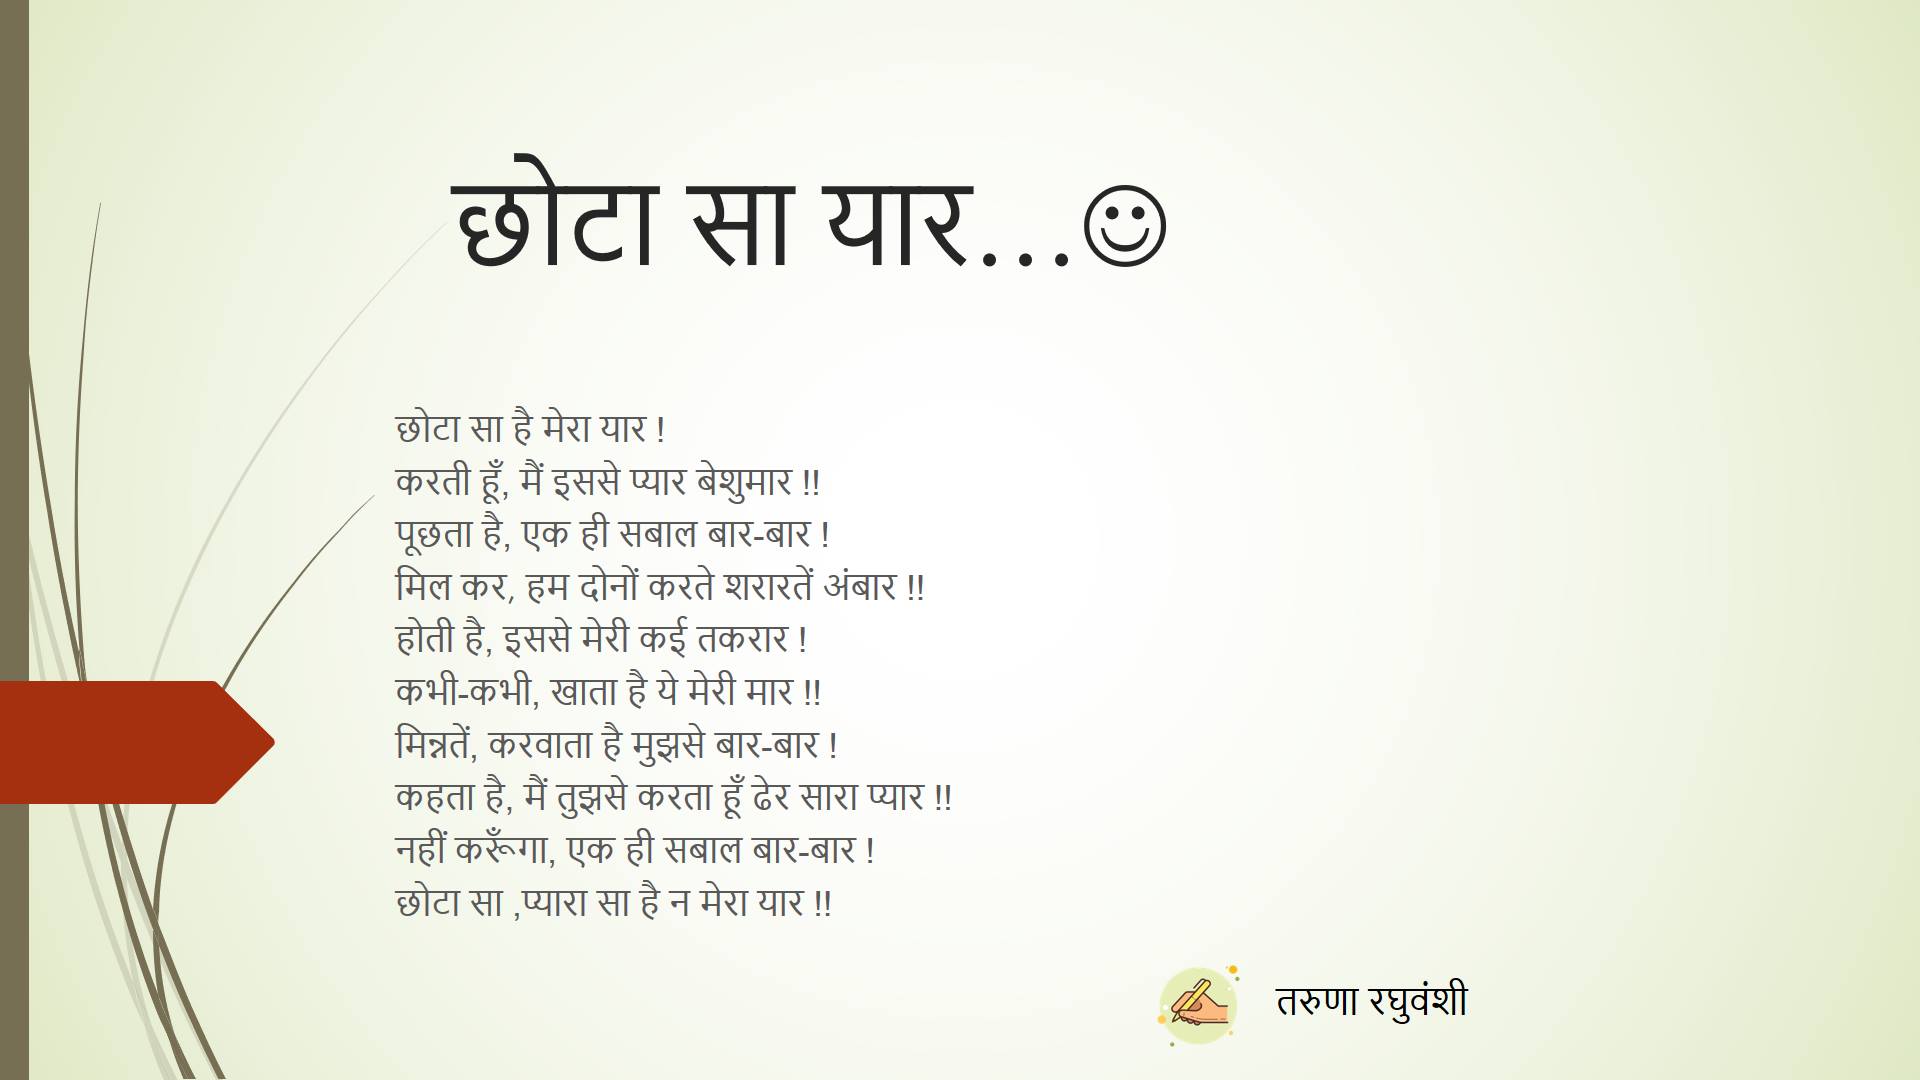 छोटा सा यार...☺
छोटा सा है मेरा यार !
करती हूँ, मैं इससे प्यार बेशुमार !!
पूछता है, एक ही सबाल बार-बार !
मिल कर, हम दोनों करते शरारतें अंबार !!
होती है, इससे मेरी कई तकरार !
कभी-कभी, खाता है ये मेरी मार !!
मिन्नतें, करवाता है मुझसे बार-बार !
कहता है, मैं तुझसे करता हूँ ढेर सारा प्यार !!
नहीं करूँगा, एक ही सबाल बार-बार !
छोटा सा ,प्यारा सा है न मेरा यार !!
तरुणा रघुवंशी